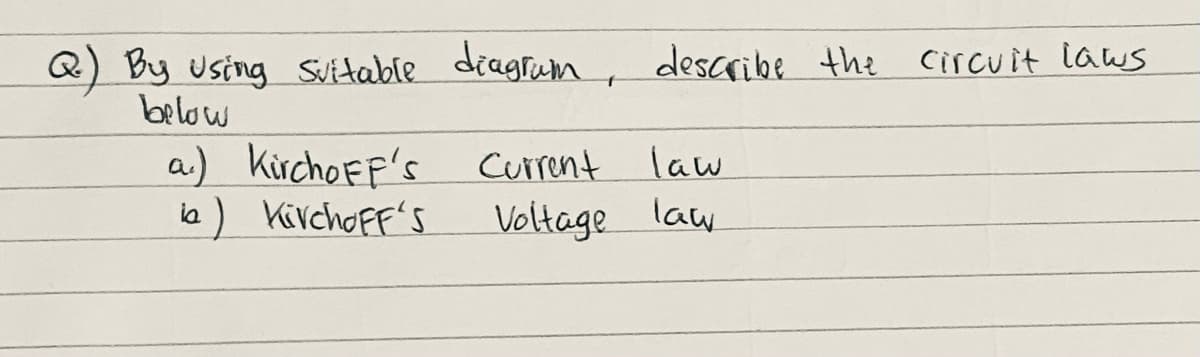 Q) By Using Suitable diagram, describe the circuit laws
below
a.) KirchoFF's Current law
b) KirchoFF's Voltage law